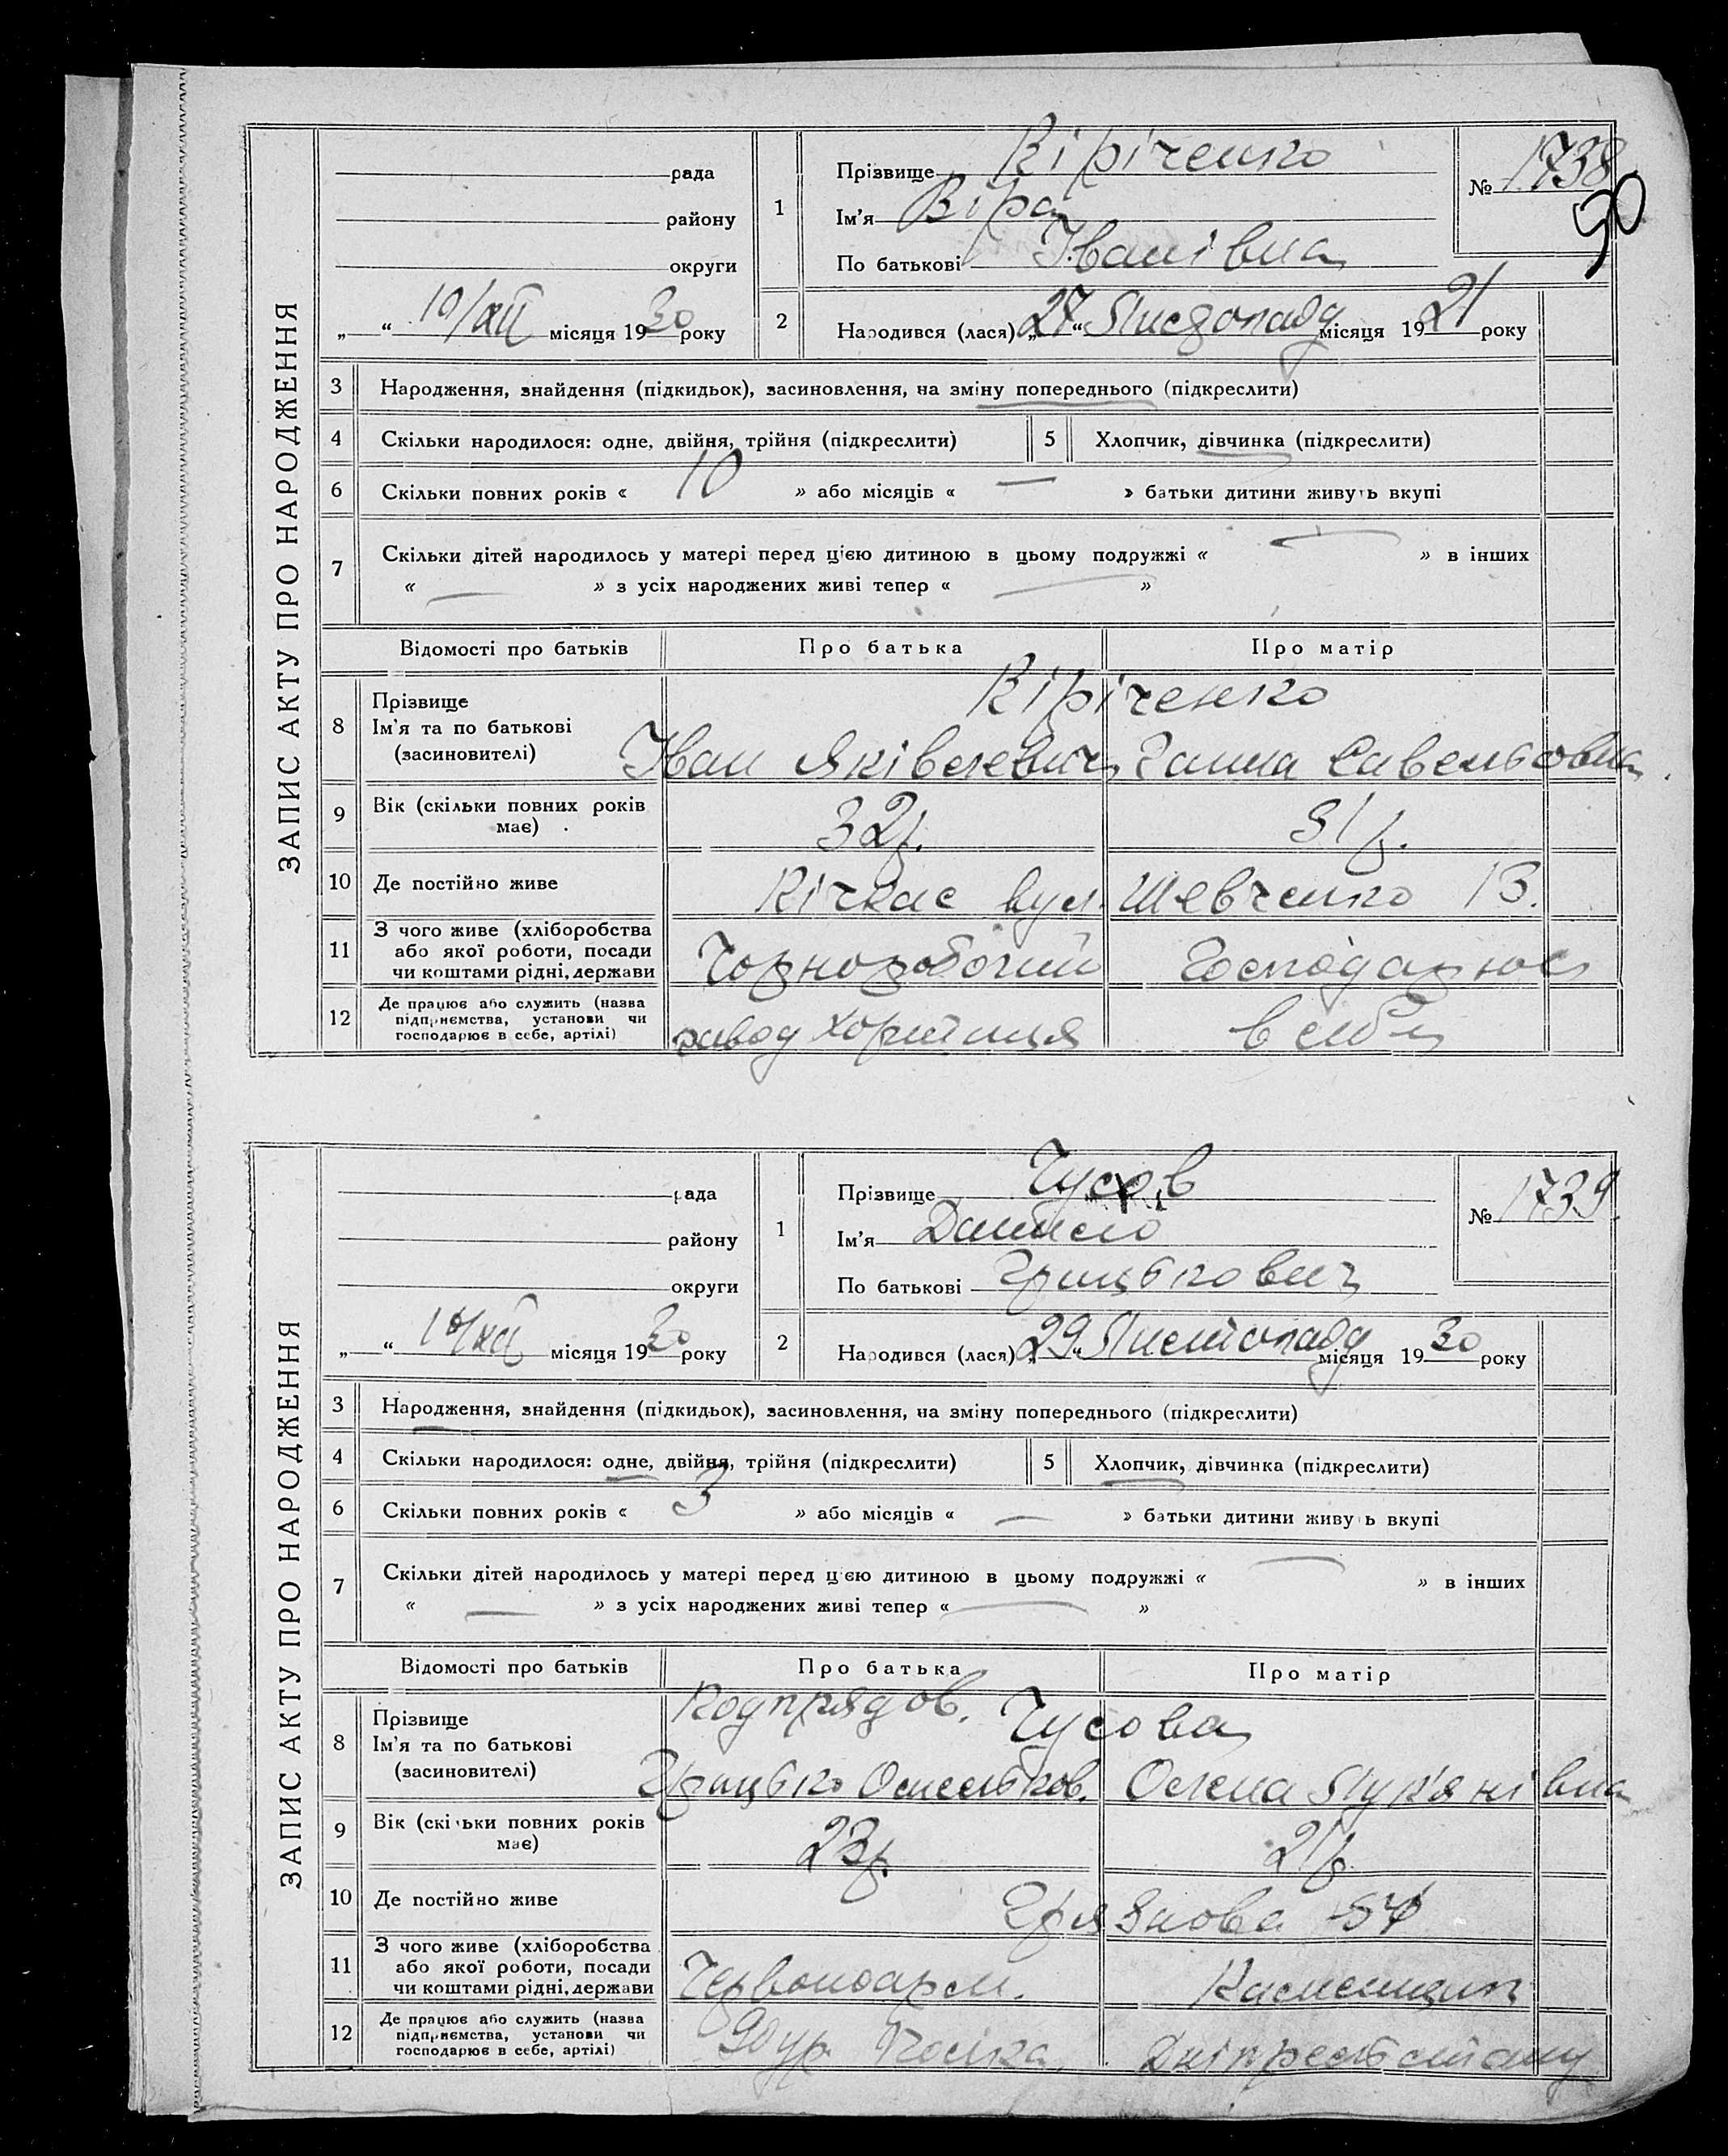 ЗАПИС АКТУ ПРО НАРОДЖЕННЯ
рада
району
округи
„ “ 10/XII місяця 1930 року
1
Прізвище Кіріченко
Ім'я Віра
По батькові Іванівна
№ 1738
90
2
Народився (лася) „27“ Листопаду місяця 1921 року
3 Народження, знайдення (підкидьок), засиновлення, на зміну попереднього (підкреслити)
4 Скільки народилося: одне, двійня, трійня (підкреслити) 5 Хлопчик, дівчинка (підкреслити)
6 Скільки повних років « 10 » або місяців « — » батьки дитини живуть вкупі
7 Скільки дітей народилось у матері перед цією дитиною в цьому подружжі « — » в інших
« — » з усіх народжених живі тепер « — »
Відомості про батьків Про батька Про матір
8 Прізвище Ім'я та по батькові (засиновителі)
Кіріченко
Іван Яківлевич Ганна Савельовна
9 Вік (скільки повних років має) 32р. 31р.
10 Де постійно живе Кічкас вул. Шевченко 13.
11 З чого живе (хліборобства або якої роботи, посади чи коштами рідні, держави Чорноробочий
12 Де працює або служить (назва підприємства, установи чи господарює в себе, артілі) завод Хортиця в себе
ЗАПИС АКТУ ПРО НАРОДЖЕННЯ
рада
району
округи
„ “ 10/XII місяця 1930 року
1
Прізвище Чусов
Ім'я Данило
По батькові Грицькович
№ 1739
2
Народився (лася) „29“ Листопаду місяця 1930 року
3 Народження, знайдення (підкидьок), засиновлення, на зміну попереднього (підкреслити)
4 Скільки народилося: одне, двійня, трійня (підкреслити) 5 Хлопчик, дівчинка (підкреслити)
6 Скільки повних років « 3 » або місяців « — » батьки дитини живуть вкупі
7 Скільки дітей народилось у матері перед цією дитиною в цьому подружжі « — » в інших
« — » з усіх народжених живі тепер « — »
Відомості про батьків Про батька Про матір
8 Прізвище Ім'я та по батькові (засиновителі)
Чусова
Грицько Омельков. Олена Лук'янівна
9 Вік (скільки повних років має) 23р. 21р.
10 Де постійно живе Грязнова 54
11 З чого живе (хліборобства або якої роботи, посади чи коштами рідні, держави Червоноарм. Каменщик
12 Де працює або служить (назва підприємства, установи чи господарює в себе, артілі) 90 ур.